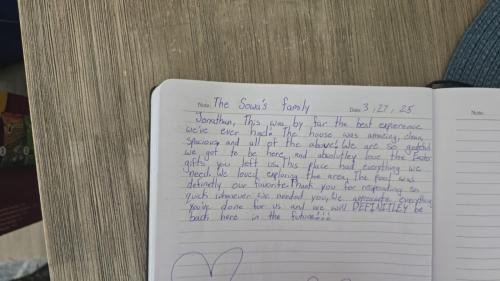 Note: The Sowa's family Date: 3, 27, 25 Note:
Jonathan, This was by far the best experience
we've ever had! The house was amazing, clean,
Spacious and all of the above! We are so grateful
we got to be here, and absolutley love the Easter
gifts you left us. This place had everything we
need. We loved exploring the area. The Pool was
definetly our favorite. Thank you for responding so
quick whenever we needed you. We appreciate everything
you've done for us and we will DEFINITLEY be
back here in the future!!!